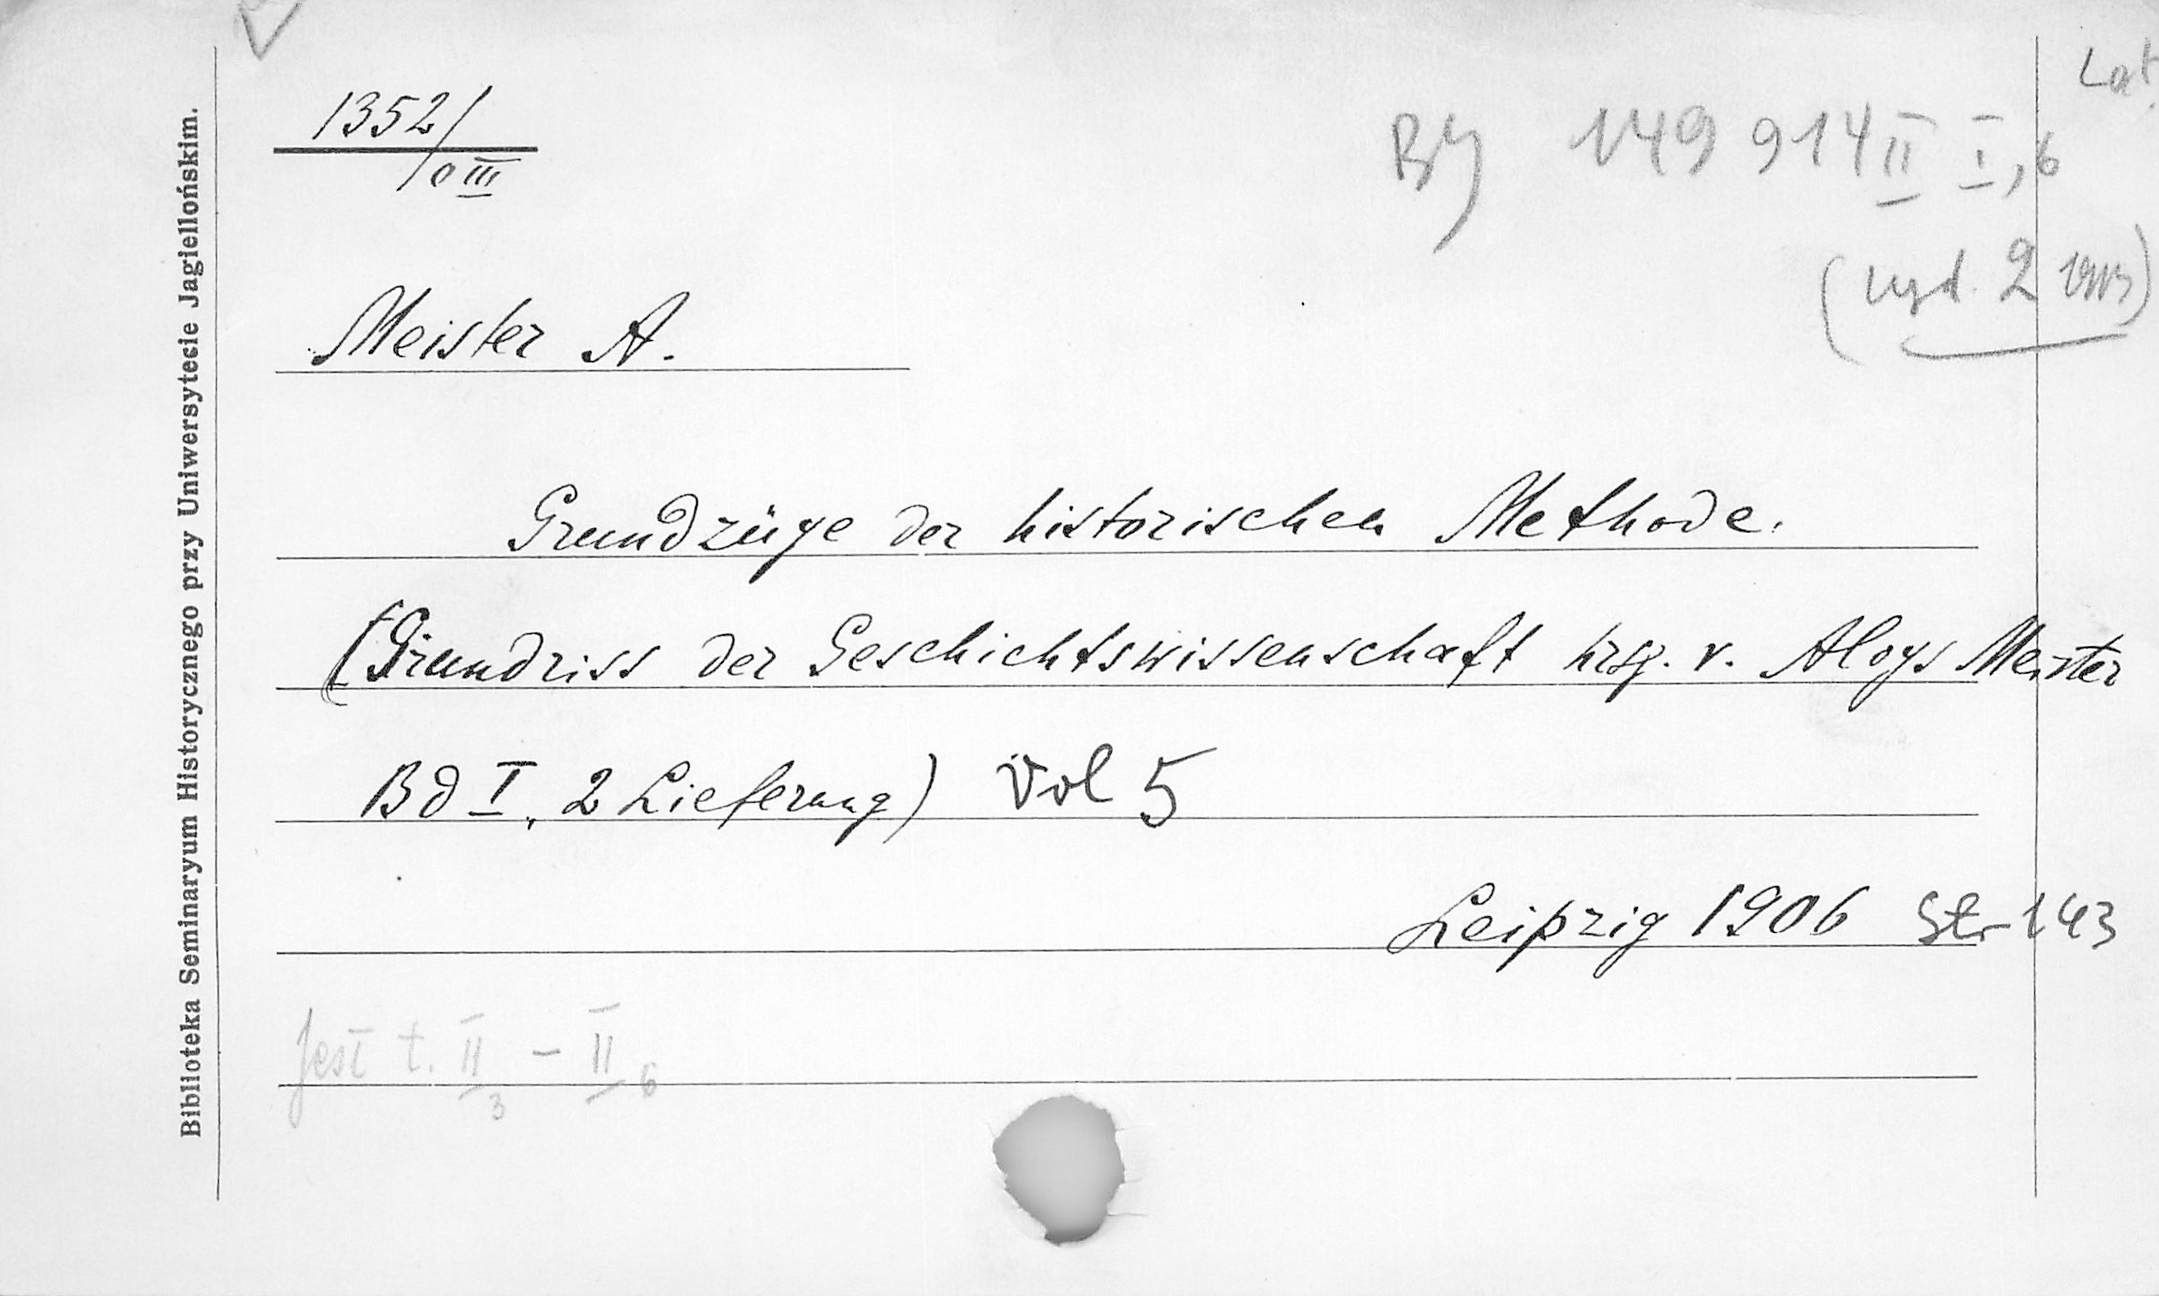 Lat.
1352/
0 III
BJ 149 914 II I, 6
(wyd. 2 1913)
Meister A.
Grundzüge der historischen Methode.
(Grundriss der Geschichtswissenschaft hrsg. v. Aloys Meister
Bd I, 2 Lieferung) Vol 5
Leipzig 1906 Str 143
jest t. II 3 – II 6
Biblioteka Seminaryum Historycznego przy Uniwersytecie Jagiellońskim.